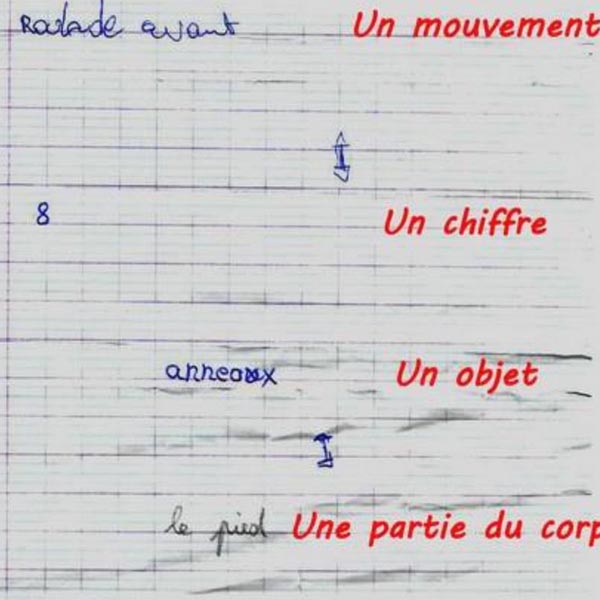 Roulade avant Un mouvement
8 Un chiffre
anneaux Un objet
le pied Une partie du corp